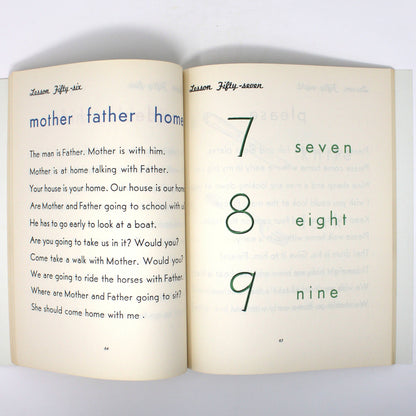 Lesson Fifty-six
mother father home
The man is Father. Mother is with him.
Mother is at home talking with Father.
Your house is your home. Our house is our home
Are Mother and Father going to school with u
He has to go early to look at a boat.
Are you going to take us in it? Would you?
Come take a walk with Mother. Would you?
We are going to ride the horses with Father.
Where are Mother and Father going to sit?
She should come home with me.
64
Lesson Fifty-seven
7 seven
8 eight
9 nine